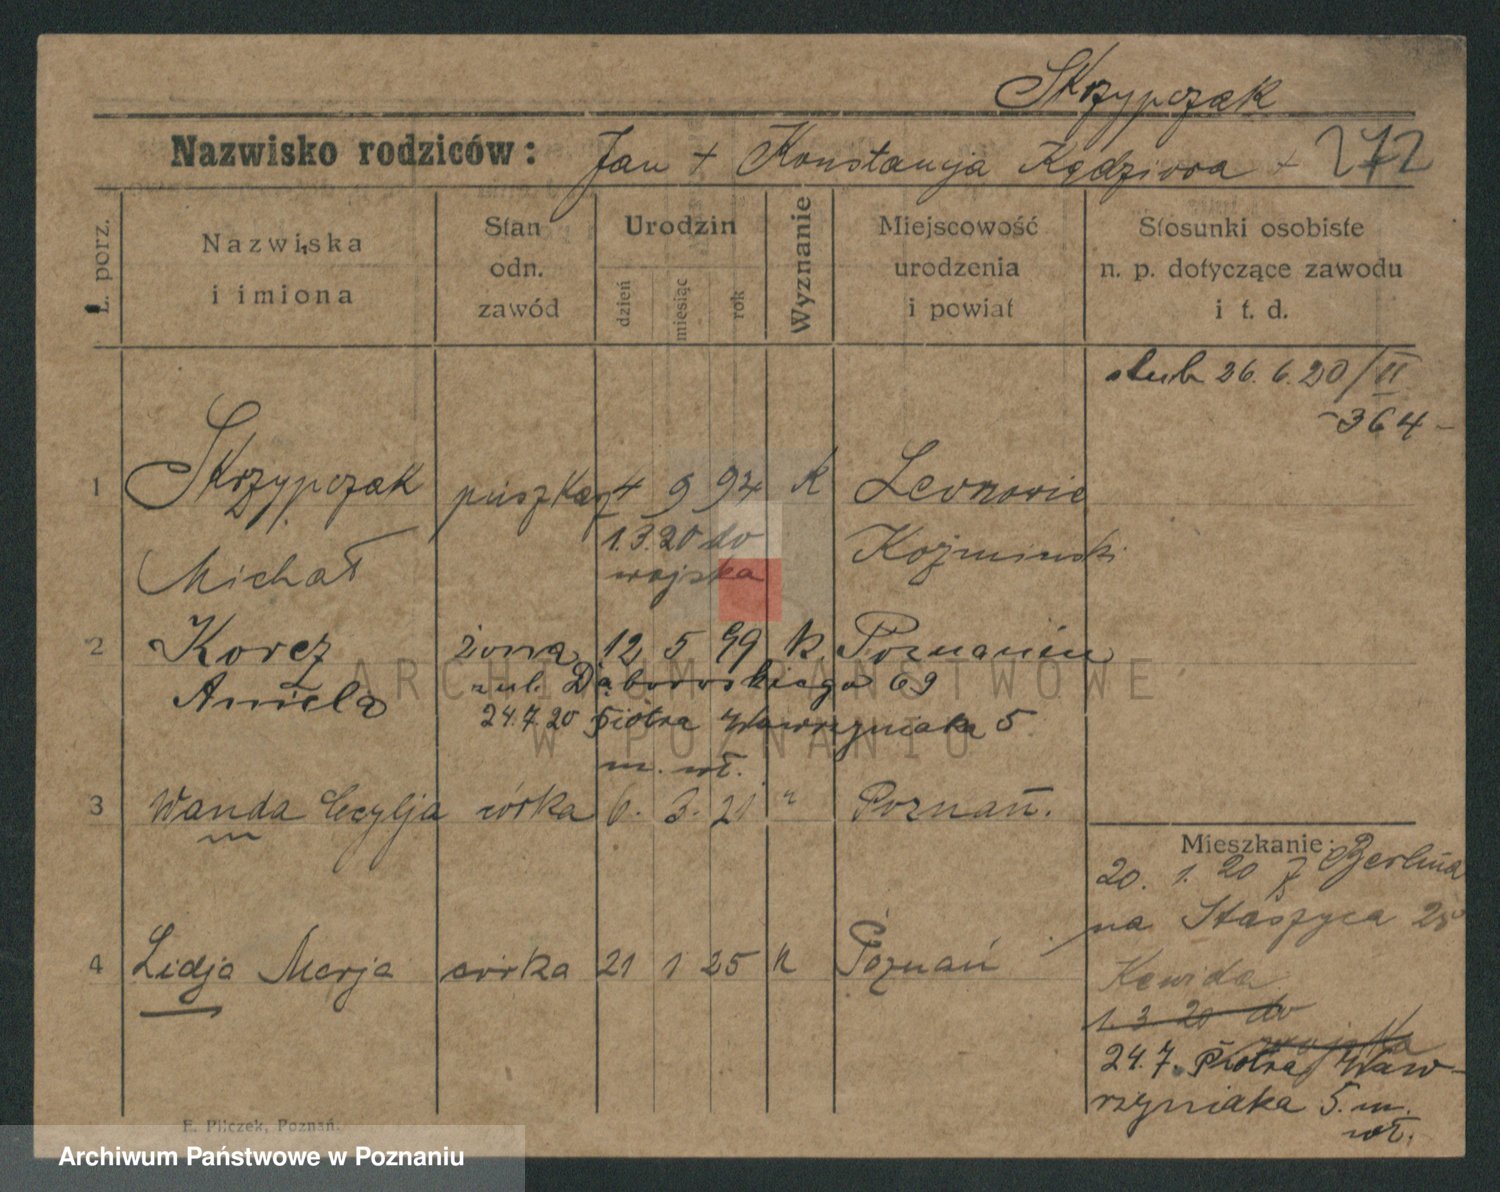 Skrzypczak
Nazwisko rodziców: Jan + Konstancja Kędziora + 272
L. porz.
Nazwiska
i imiona
Stan
odn.
zawód
Urodzin
dzień
miesiąc
rok
Wyznanie
Miejscowość
urodzenia
i powiat
Stosunki osobiste
n. p. dotyczące zawodu
i t. d.
ślub 26.6.20/II
-364-
1 Skrzypczak puszkarz 4 9 94 k
Michał
1.3.20 do
wojska
Koźminski
2 Korcz żona 12 5 99 k Poznań
Aniela
ul. Dąbrowskiego 69
24.7.20 Piotra Wawrzyniaka 5
m. wł.
3 Wanda Cecylja córka 6. 3. 21 " Poznań.
4 Lidja Marja córka 21 1 25 k Poznań
Mieszkanie:
20. 1. 20 z Berlina
na Staszyca 25
1.3.20 do
wojska
24.7. Piotra Waw-
rzyniaka 5. m.
wł.
E. Pilczek, Poznań.
ARCHIWUM PAŃSTWOWE
W POZNANIU
Archiwum Państwowe w Poznaniu